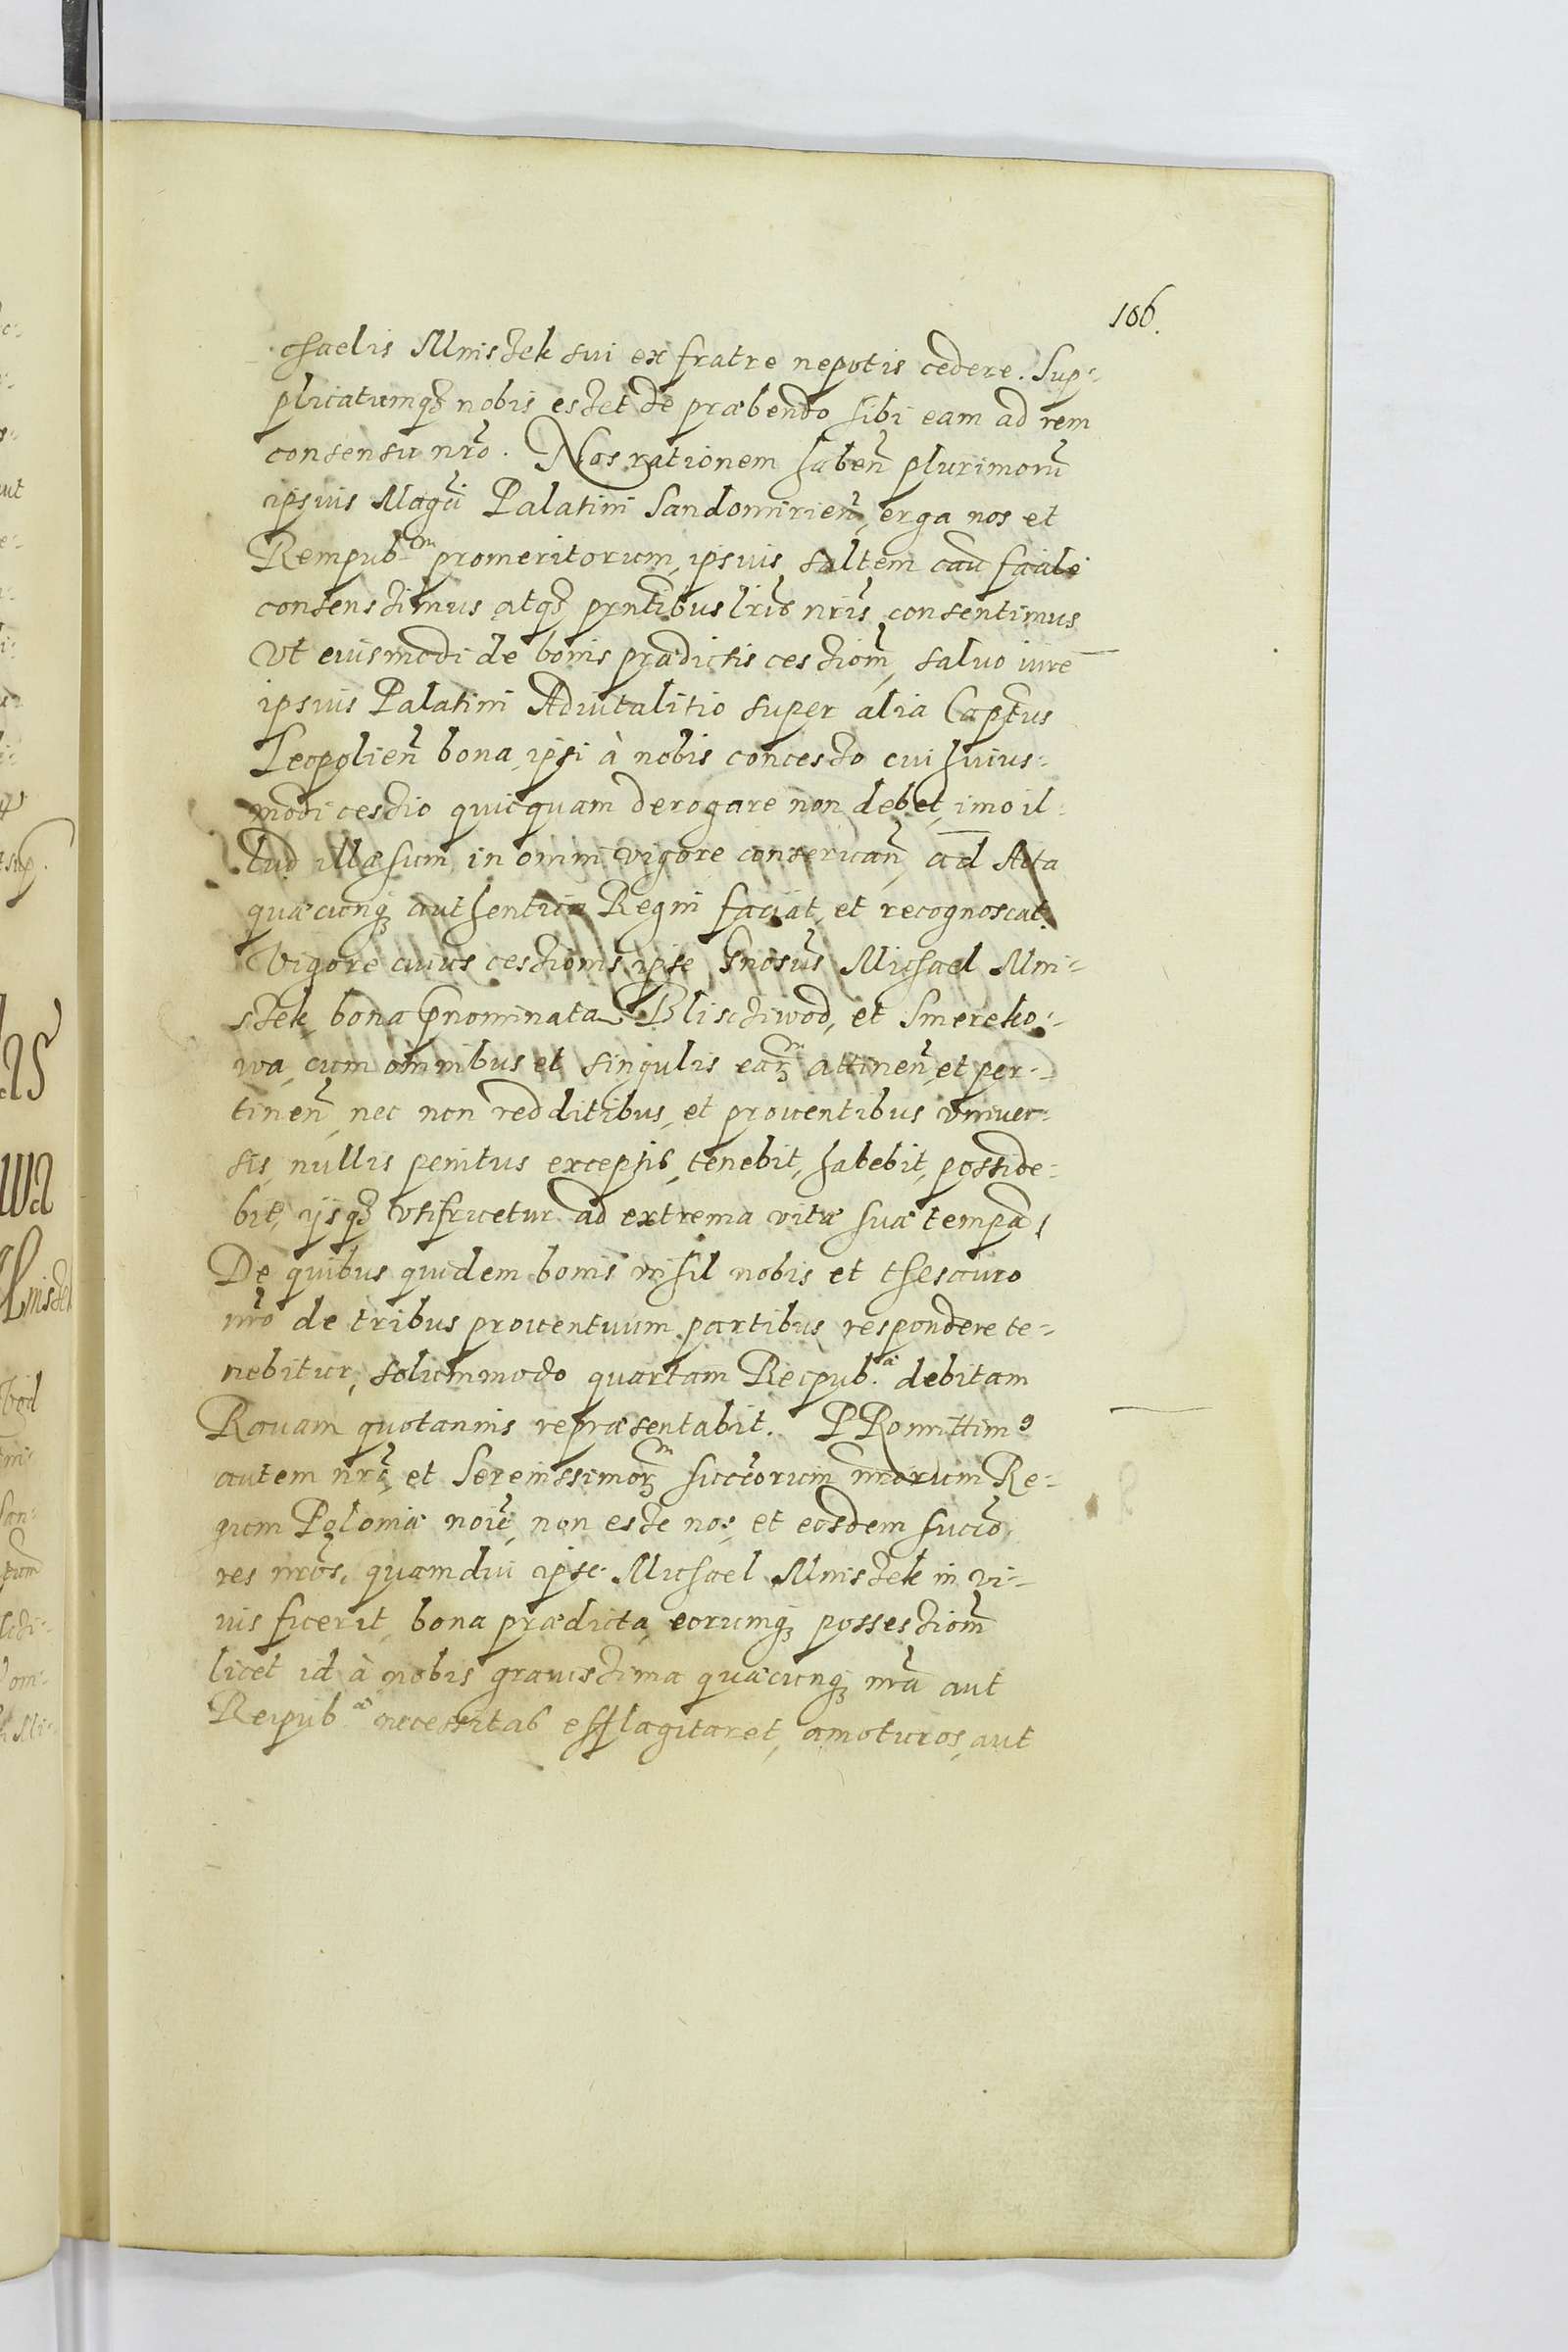 106.
chaelis Mniszek sui ex fratre nepotis cedere. Sup-
plicatumq3 nobis esset de præbendo sibi eam ad rem
consensu nr̃o. Nos rationem habeñ plurimorũ
ipsius Magči Palatini Sandomirieñ, erga nos et
Rempub^cam promeritorum, ipsius saltem facile
consensimus atq3 pñtibus lr̃is nr̃is consentimus
Vt eiusmodi de bonis prædictis cessionẽ, saluo iure
ipsius Palatini Aduitalitio super alia Captus
Leopolieñ bona, ipsi à nobis concesso cui huius-
modi cessio quicquam derogare non debet, imo il-
lud illæsum, in omni vigore conseruañ, ad Acta
quæcunq3 authentica Regni faciat, et recognoscat.
Vigore cuius cessionis, ipse Gnõsus Michael Mni-
szek bona pnominata Blisctiwod, et Smereko-
wa, cum omnibus et singulis earz^m attineñ et per-
tineñ, nec non redditibus, et prouentibus vniuer-
sis, nullis penitus exceptis, tenebit, habebit, posside-
bit, ijsq3 vtifruetur ad extrema vitæ suæ tempa,
De quibus quidem bonis nihil nobis et thesauro
nr̃o de tribus prouentuum partibus respondere te-
nebitur, solummodo quartam Reipub.^æ debitam
Rauam quotannis repræsentabit. PRomittim9
autem nr̃o, et Serenissimorz^m succõrum nr̃orum Re-
gum Poloniæ noĩe, non esse nos, et eosdem succõ
res nr̃os, quamdiu ipse Michael Mniszek in vi-
uis fuerit, bona prædicta, eorumq3 possessionẽ
licet id à nobis grauissima quæcunq3 nr̃a aut
Reipub^æ necessitas efflagitaret, amoturos, aut